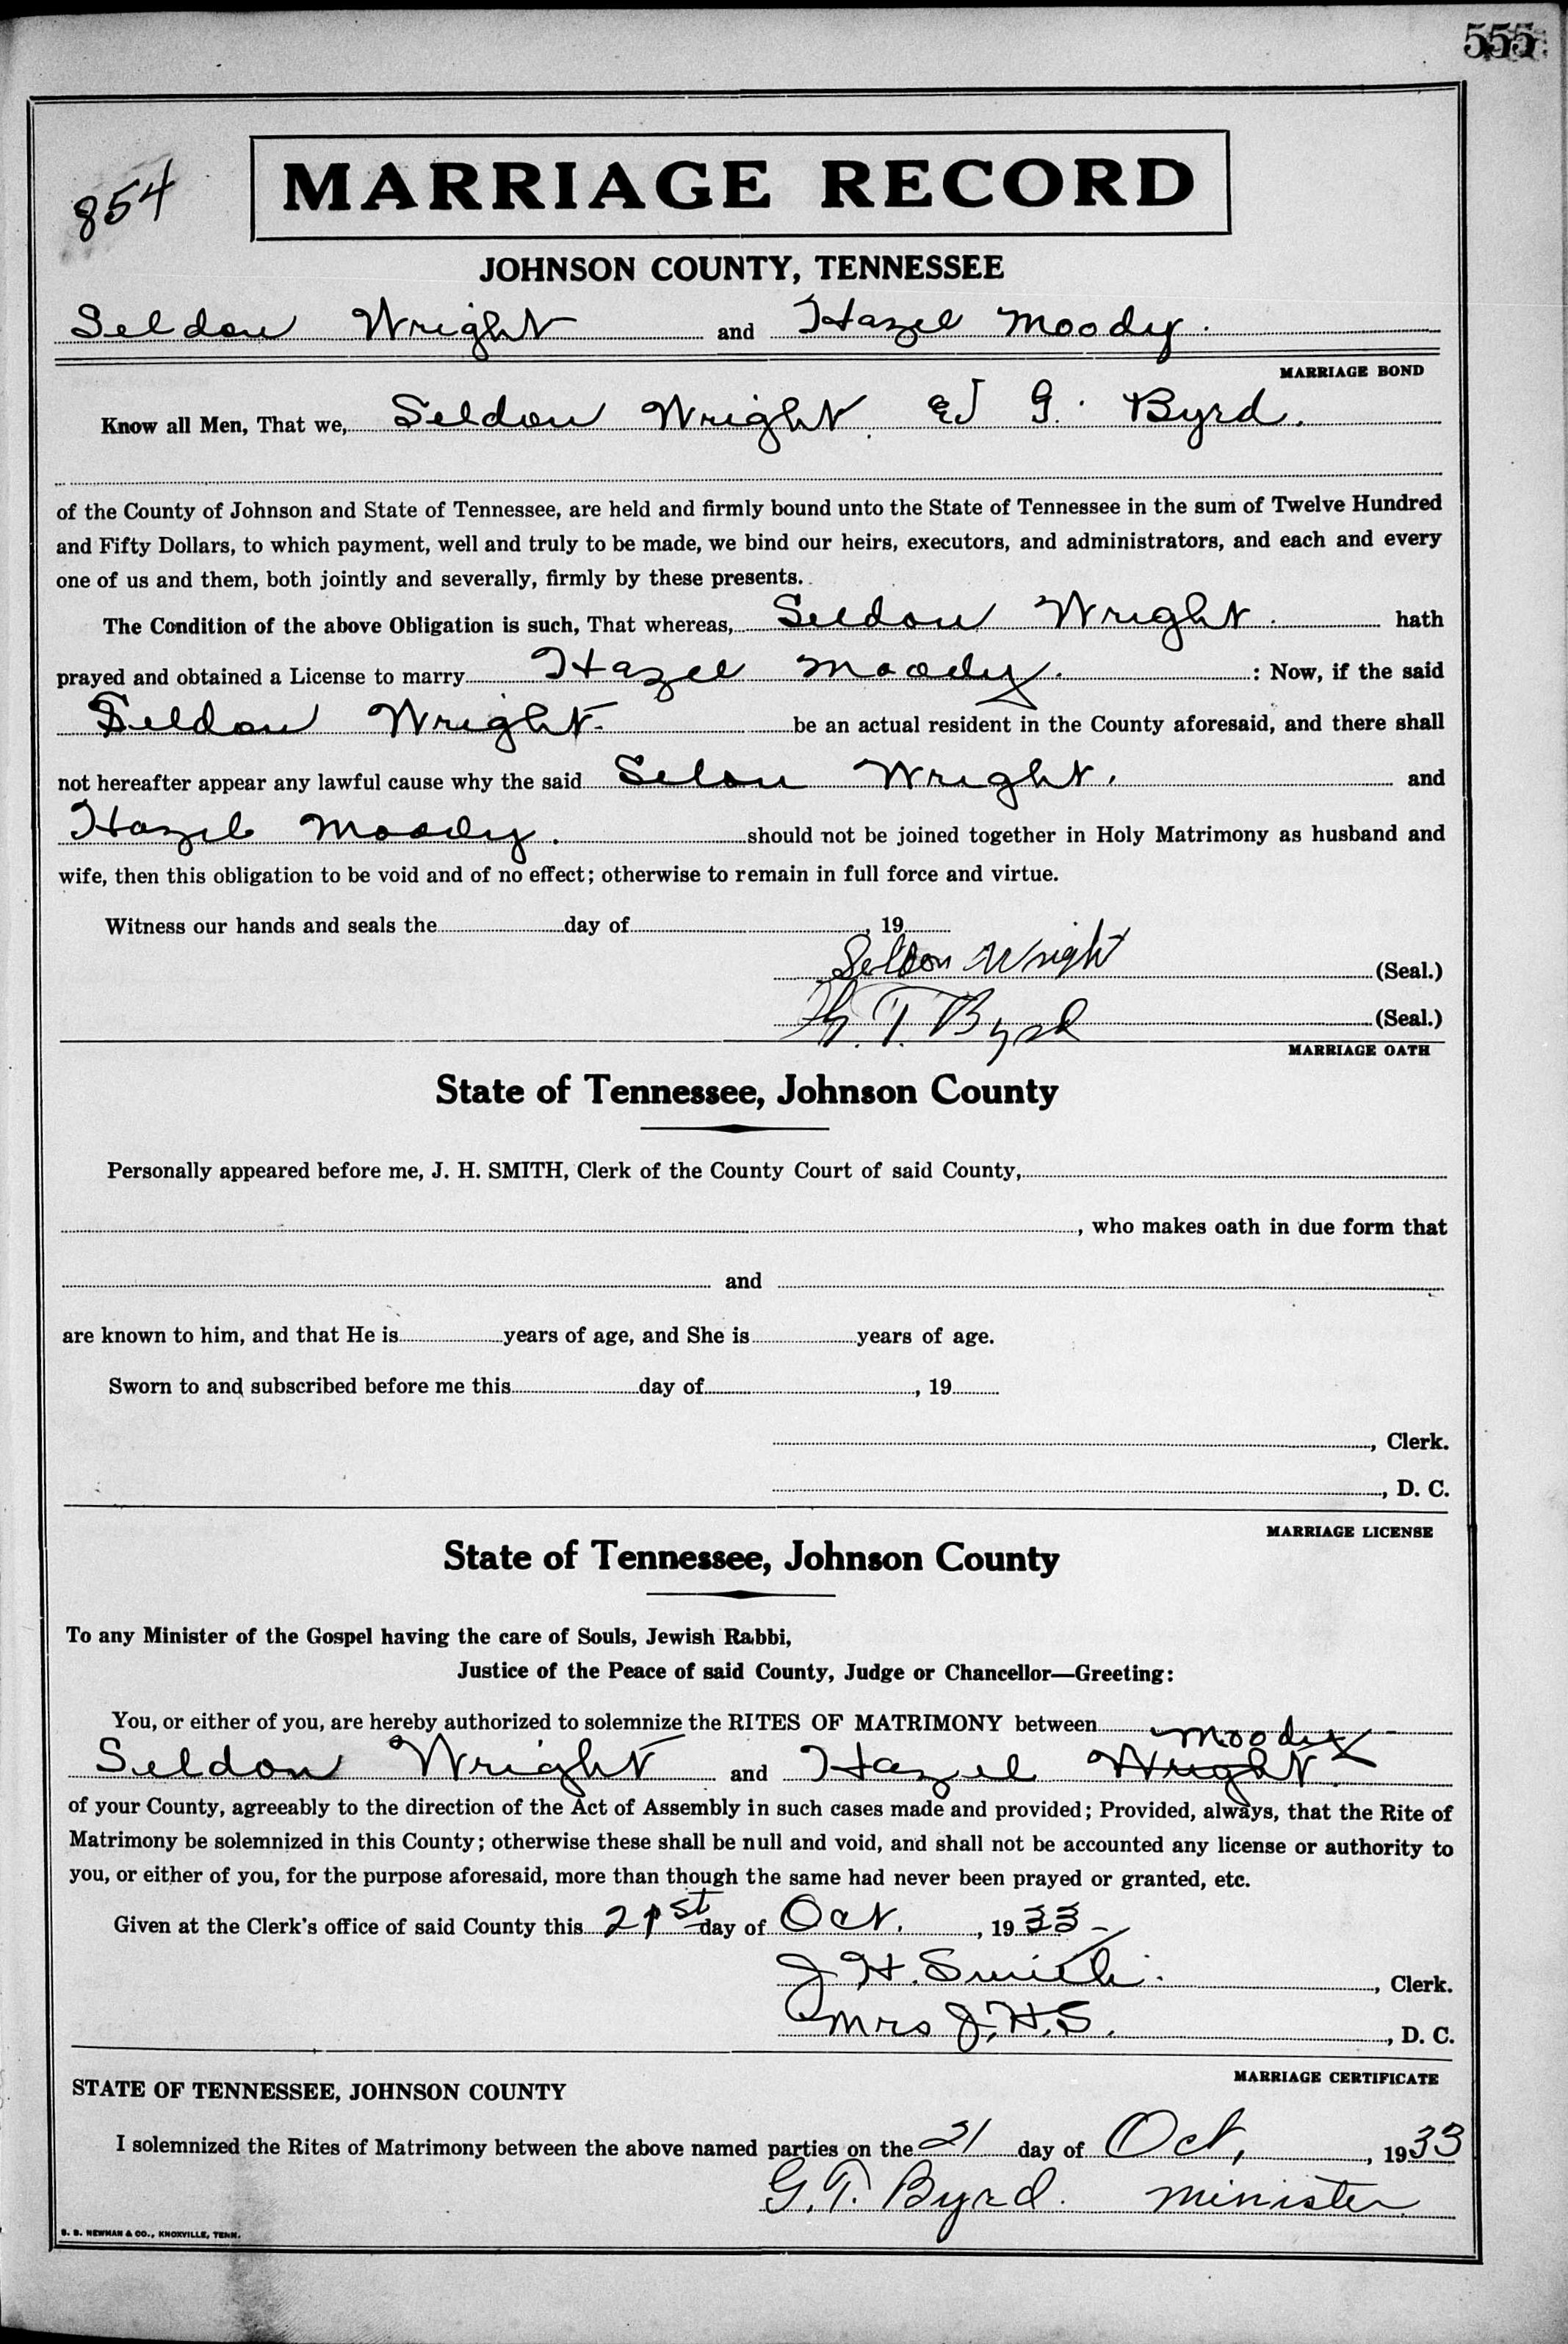 555
854
MARRIAGE RECORD
JOHNSON COUNTY, TENNESSEE
Seldon Wright and Hazel Moody.
MARRIAGE BOND
Know all Men, That we, Seldon Wright. & G. Byrd.
of the County of Johnson and State of Tennessee, are held and firmly bound unto the State of Tennessee in the sum of Twelve Hundred
and Fifty Dollars, to which payment, well and truly to be made, we bind our heirs, executors, and administrators, and each and every
one of us and them, both jointly and severally, firmly by these presents.
The Condition of the above Obligation is such, That whereas, Seldon Wright. hath
prayed and obtained a License to marry Hazel Moody. : Now, if the said
Seldon Wright. be an actual resident in the County aforesaid, and there shall
not hereafter appear any lawful cause why the said Selon Wright. and
Hazel Moody. should not be joined together in Holy Matrimony as husband and
wife, then this obligation to be void and of no effect; otherwise to remain in full force and virtue.
Witness our hands and seals the day of , 19
Seldon Wright (Seal.)
T. Byrd (Seal.)
MARRIAGE OATH
State of Tennessee, Johnson County
Personally appeared before me, J. H. SMITH, Clerk of the County Court of said County,
, who makes oath in due form that
and
are known to him, and that He is years of age, and She is years of age.
Sworn to and subscribed before me this day of , 19
, Clerk.
, D. C.
MARRIAGE LICENSE
State of Tennessee, Johnson County
To any Minister of the Gospel having the care of Souls, Jewish Rabbi,
Justice of the Peace of said County, Judge or Chancellor—Greeting:
You, or either of you, are hereby authorized to solemnize the RITES OF MATRIMONY between Moody
Seldon Wright and Hazel Wright.
of your County, agreeably to the direction of the Act of Assembly in such cases made and provided; Provided, always, that the Rite of
Matrimony be solemnized in this County; otherwise these shall be null and void, and shall not be accounted any license or authority to
you, or either of you, for the purpose aforesaid, more than though the same had never been prayed or granted, etc.
Given at the Clerk's office of said County this 21st day of Oct. , 1933-
J H. Smith. , Clerk.
Mrs J.H.S. , D. C.
MARRIAGE CERTIFICATE
STATE OF TENNESSEE, JOHNSON COUNTY
I solemnized the Rites of Matrimony between the above named parties on the 21 day of Oct, , 1933
G.T. Byrd. minister
S. B. NEWMAN & CO., KNOXVILLE, TENN.